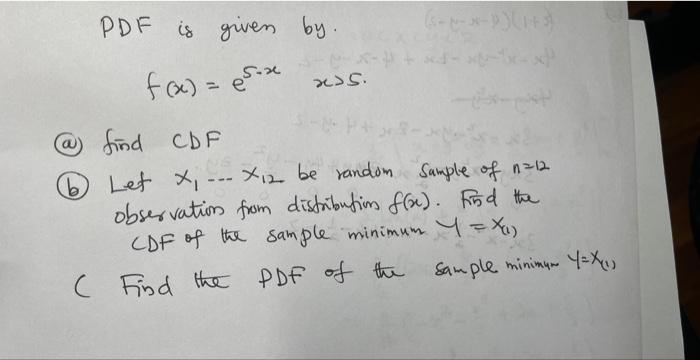 PDF is given by.
f(x) = e^{5-x} x>5.
(a) find CDF
(b) Let X_1 --- X_{12} be random sample of n=12
observation from distribution f(x). Find the
CDF of the sample minimum Y = X_{(1)}
C Find the PDF of the sample minimum Y=X_{(1)}